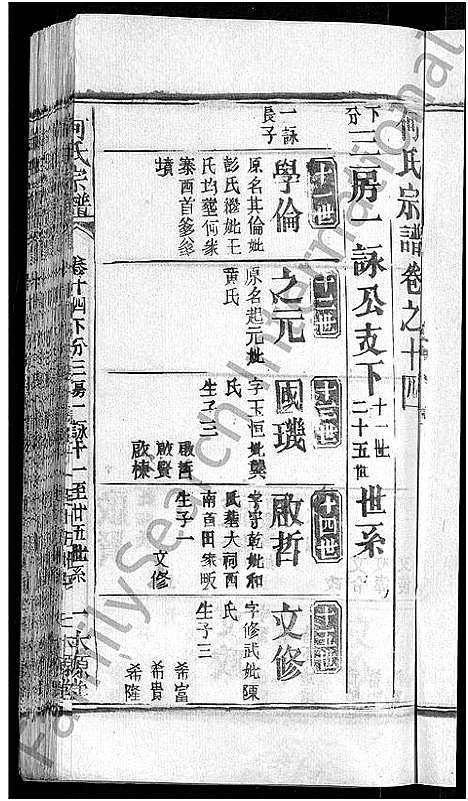 何氏宗譜卷之十四
下分三房一詠公支下十一世二十五世世系
一詠長子
十一世
學倫
原名其倫妣
彭氏繼妣王
氏均塟何家
寨酉首爹翁
墳
十二世
之元
原名起元妣
黄氏
十三世
國璣
字玉恒妣龔
氏
生子三
啟哲
啟賢
啟棟
十四世
啟哲
字守乾妣和
氏塟大祠西
南百田家畈
生子一
文修
十五世
文修
字修武妣陳
氏
生子三
希富
希貴
希隆
何氏宗譜
卷十四下分三房一詠十一至廿五世系
FamilySearch International